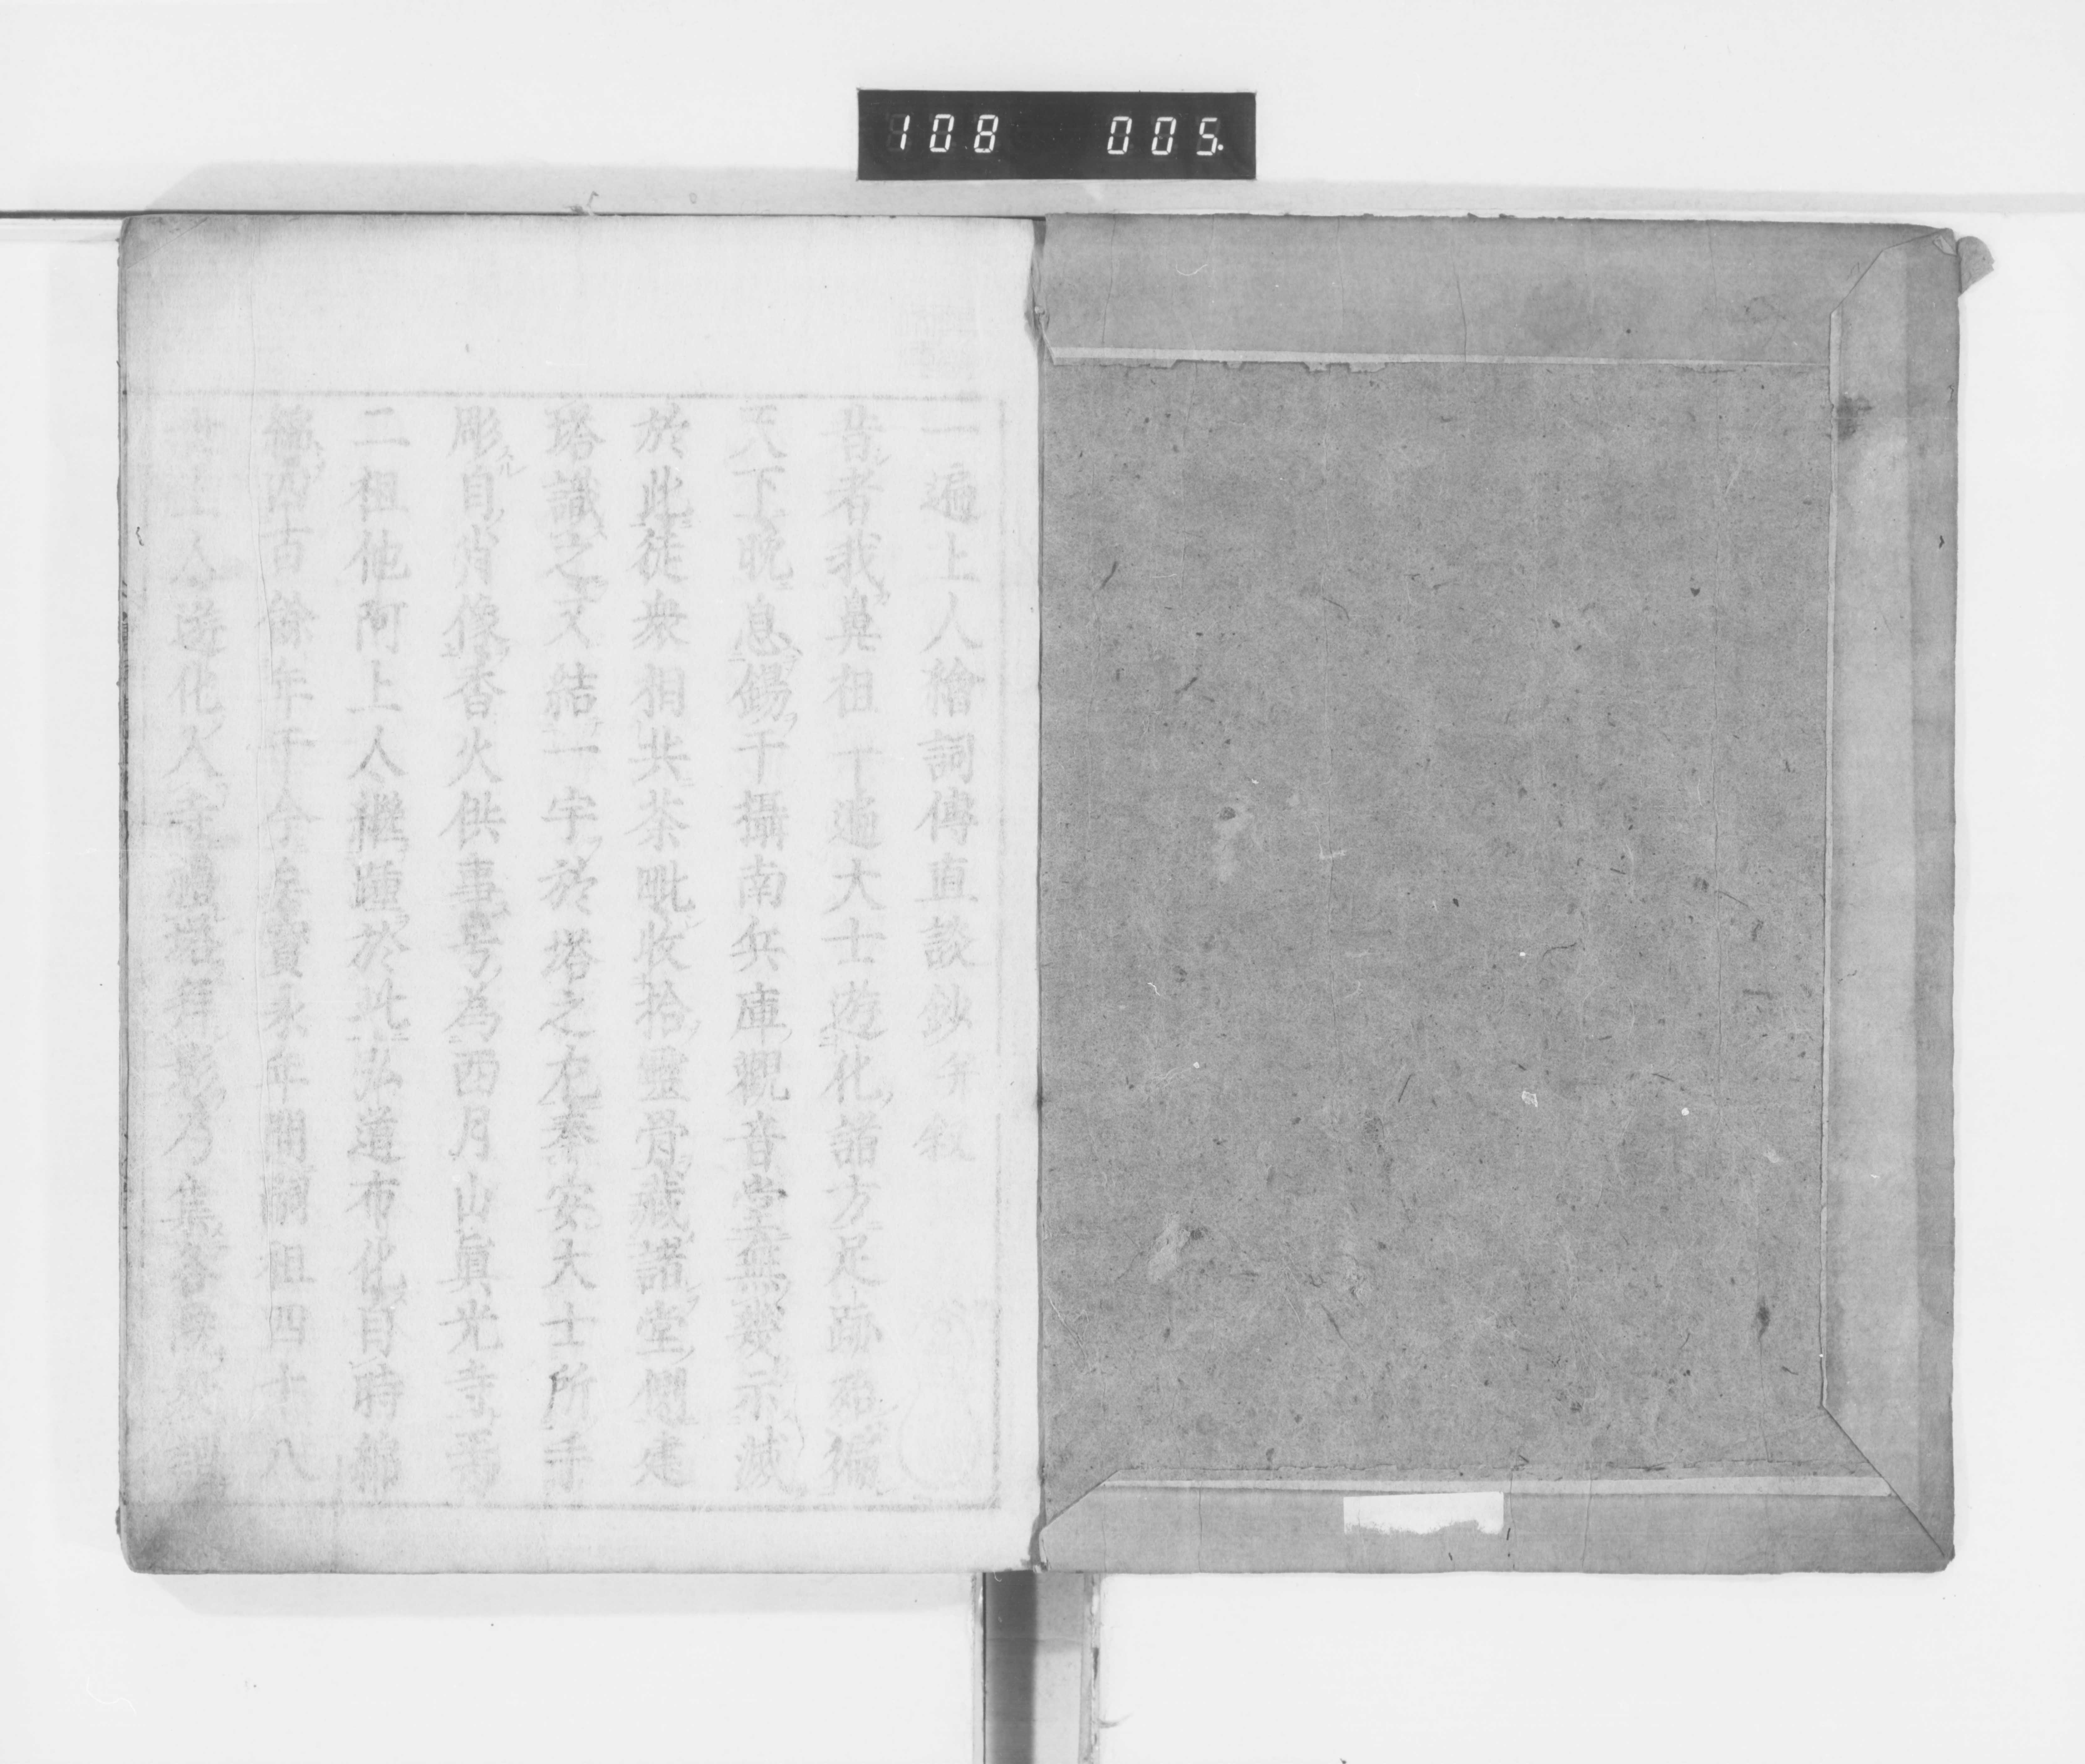 108 005
一遍上人繪詞傳直談鈔并叙
昔者我奠祖一遍大士遊化諸方足跡殆徧
天下晩息錫于攝南兵庫觀音堂無幾示滅
於此徒衆相共荼毗收拾靈骨藏諸堂側建
塔識之又結一宇於塔之左奉安大士所手
彫自肖像香火供事号為西月山眞光寺焉
二祖他阿上人繼踵於此弘道布化自時綿
綿四百餘年于今矣寳永年間嗣祖四十八
上人遊化入寺禮塔拜影乃集